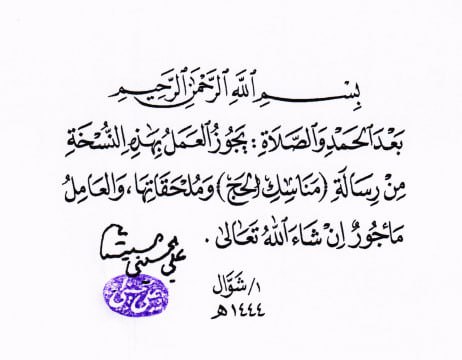 بِسْمِ اللهِ الرَّحْمٰنِ الرَّحِيمِ
بَعْدَ الحَمْدِ وَالصَّلَاةِ : يَجُوزُ العَمَلُ بِهٰذِهِ النُّسْخَةِ
مِنْ رِسَالَةِ (مَنَاسِكِ الحَجِّ) وَمُلْحَقَاتِهَا، وَالعَامِلُ
مَأجُورٌ إِنْ شَاءَ اللهُ تَعَالىٰ .
علي الحسيني السيستاني
١/ شَوَّال
١٤٤٤هـ